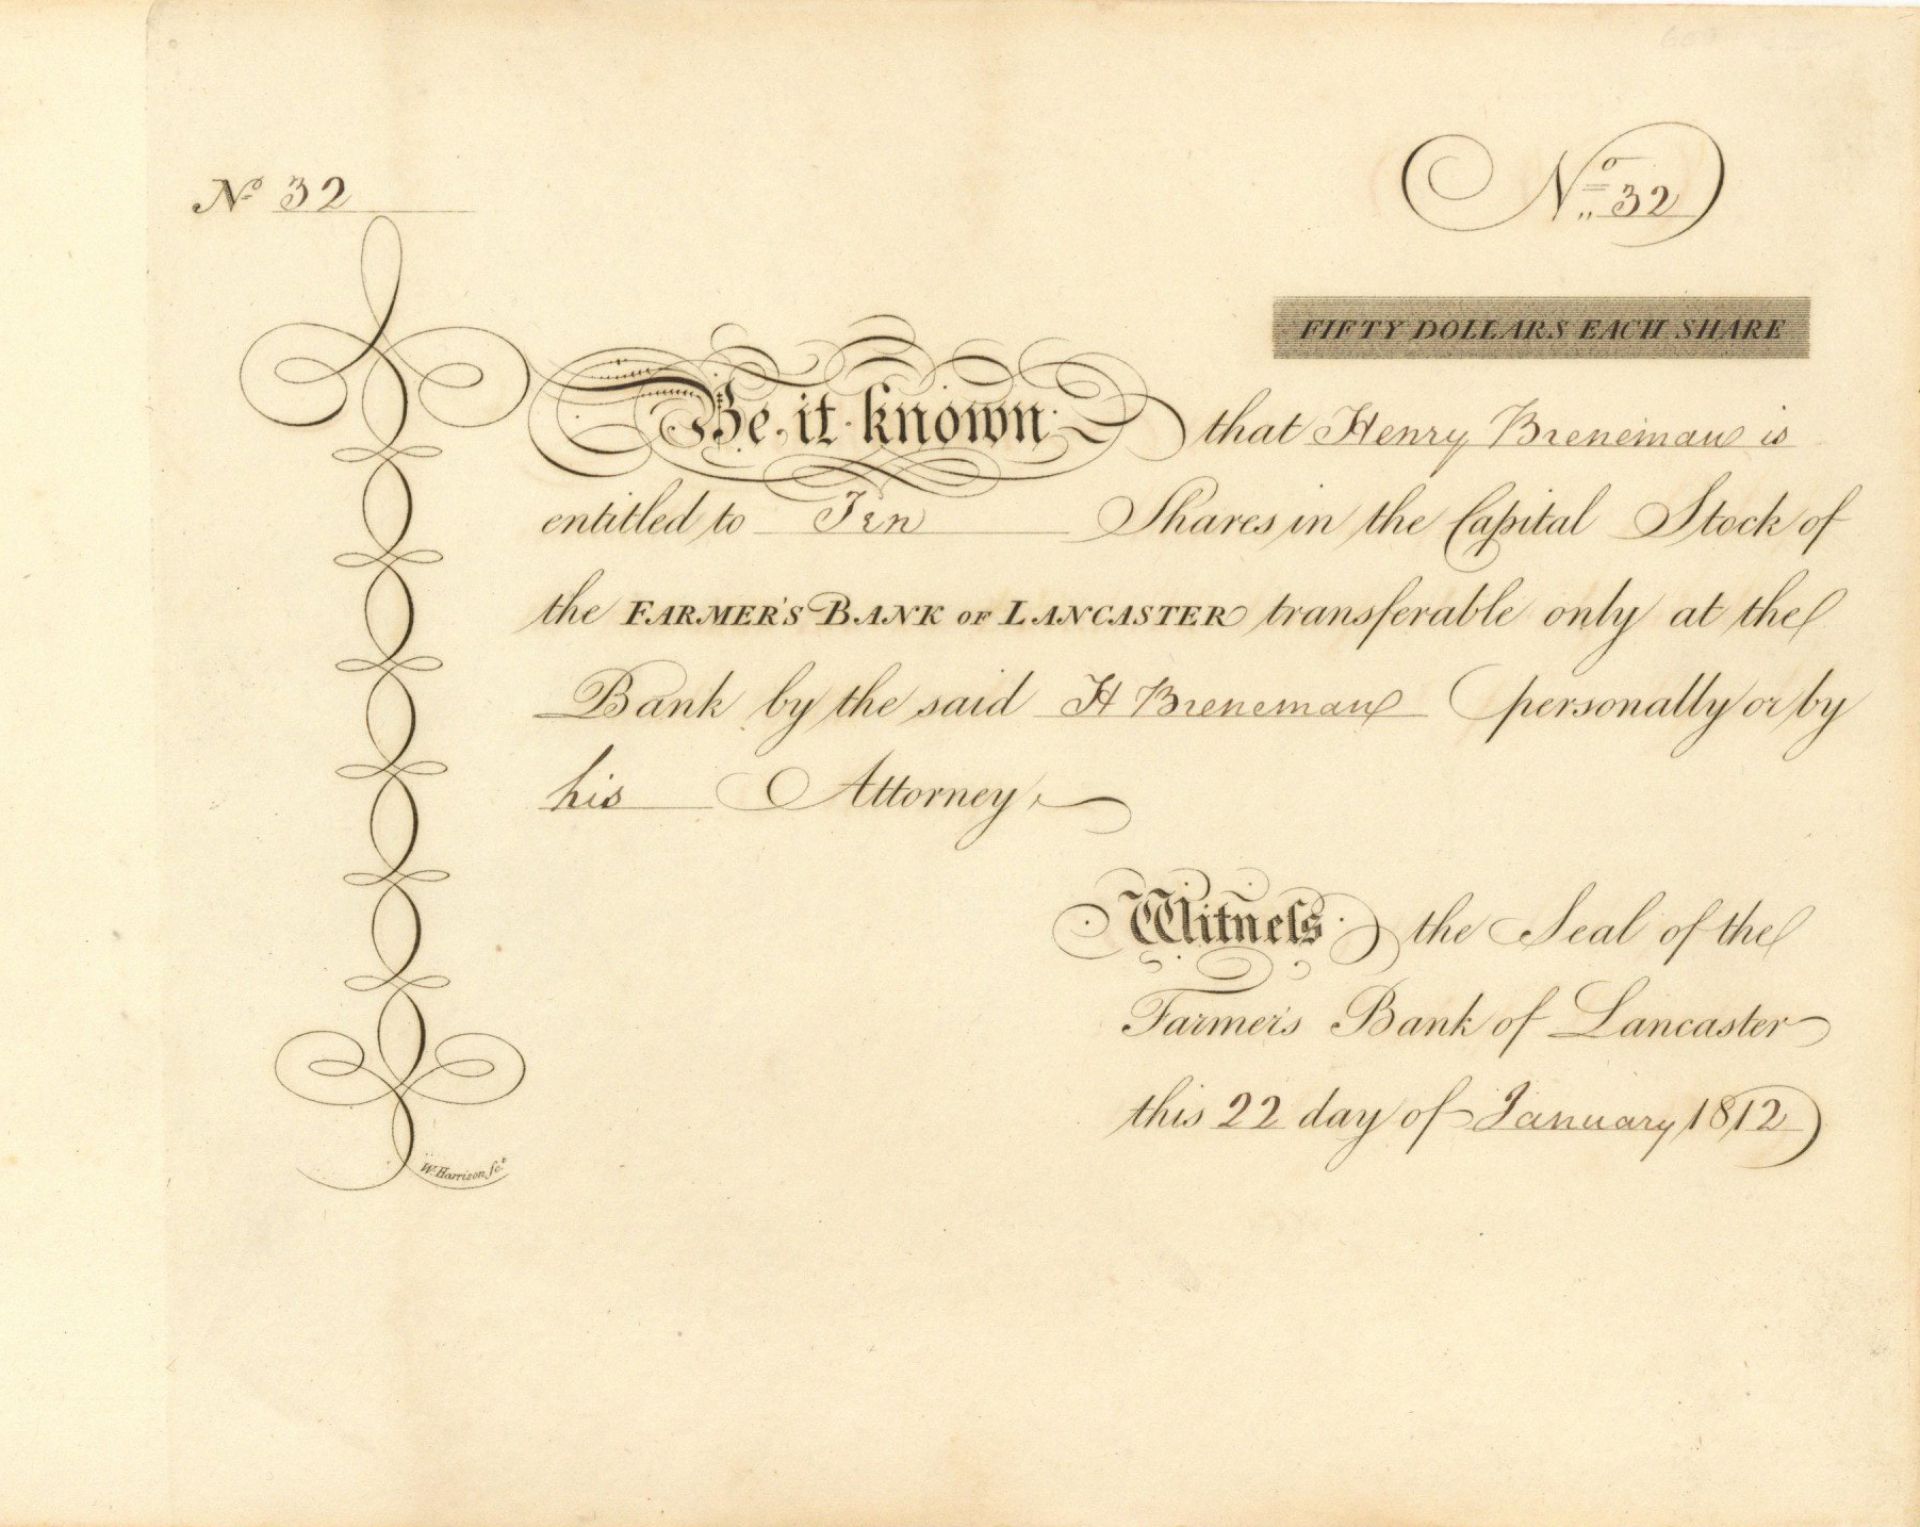 No 32
No 32
FIFTY DOLLARS EACH SHARE
Be it known that Henry Breneman is
entitled to Ten Shares in the Capital Stock of
the FARMER'S BANK OF LANCASTER transferable only at the
Bank by the said H Breneman personally or by
his Attorney
Witneſs the Seal of the
Farmer's Bank of Lancaster
this 22 day of January 1812
W. Harrison Sct